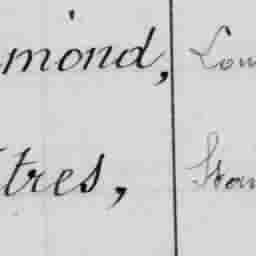 mond, Lou
tres, Stan